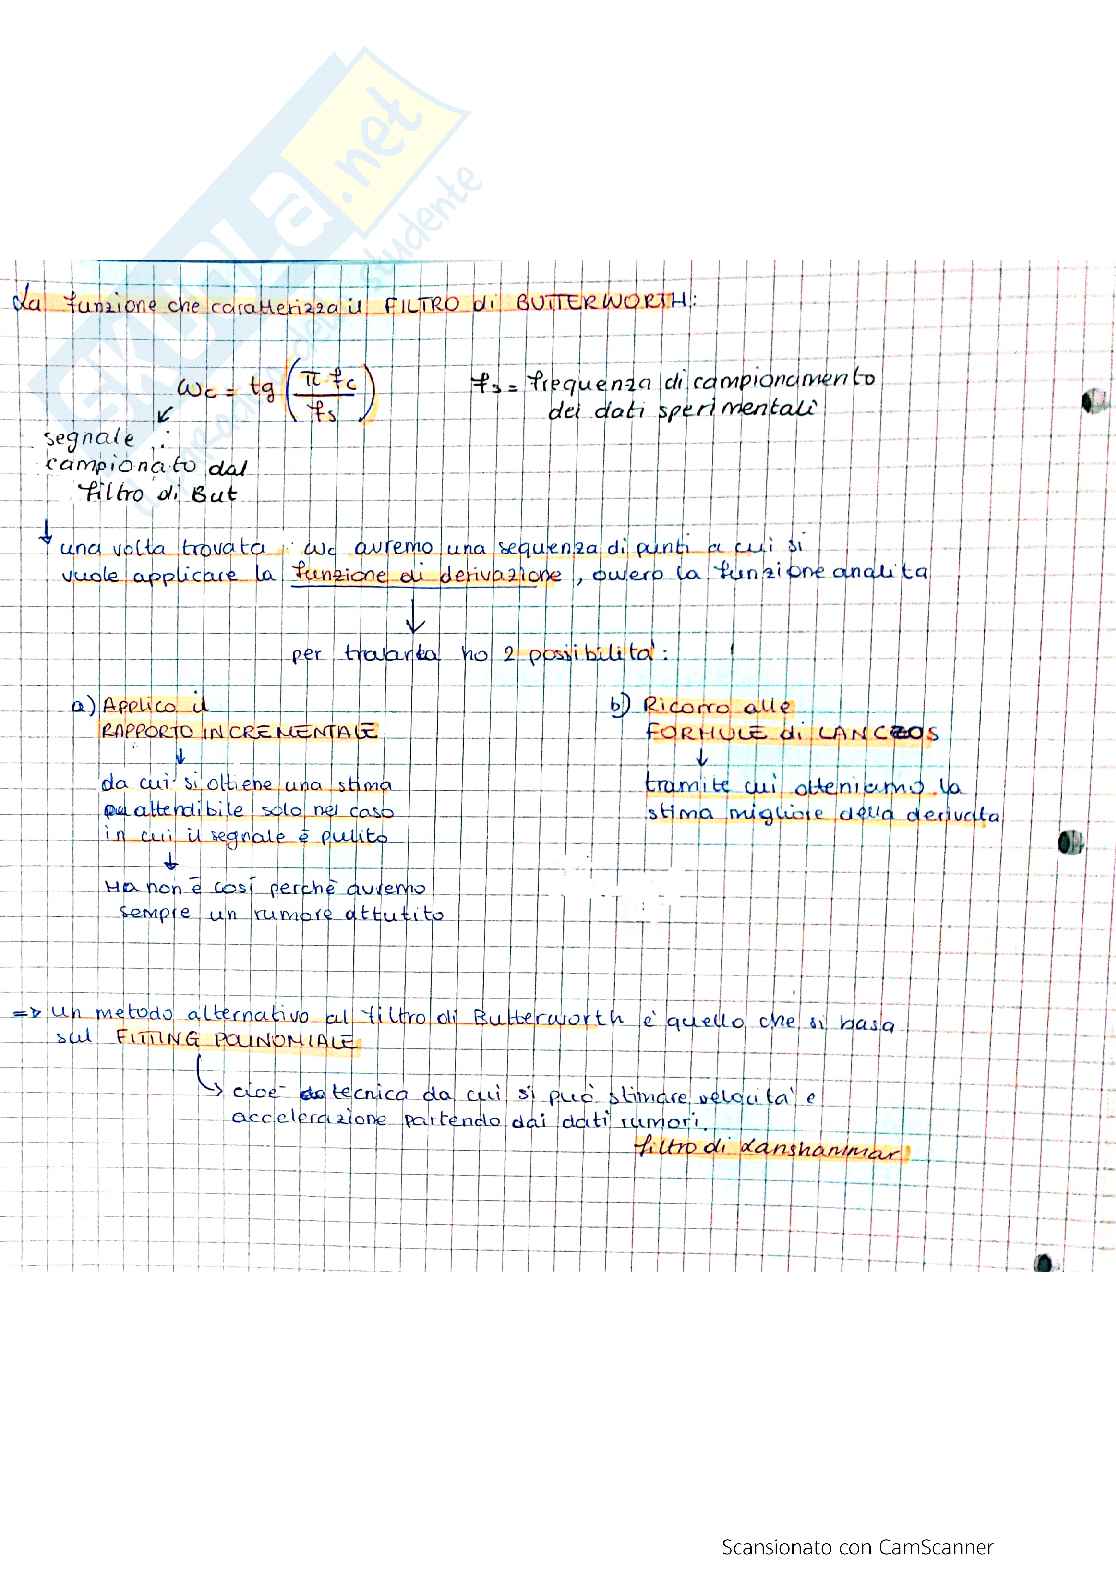 SKUOLA.net
La funzione che caratterizza il FILTRO di BUTTERWORTH:
ωc = tg (π fc / fs)
fs = frequenza di campionamento
dei dati sperimentali
segnale
campionato dal
filtro di But
una volta trovata ωc avremo una sequenza di punti a cui si
vuole applicare la funzione di derivazione, ovvero la funzione analita
per trovarla ho 2 possibilità:
a) Applico il
RAPPORTO INCREMENTALE
da cui si ottiene una stima
attendibile solo nel caso
in cui il segnale è pulito
Ma non è così perchè avremo
sempre un rumore attutito
b) Ricorro alle
FORMULE di LANCZOS
tramite cui otteniamo la
stima migliore della derivata
=> un metodo alternativo al filtro di Butterworth è quello che si basa
sul FITTING POLINOMIALE
cioè tecnica da cui si può stimare velocità e
accelerazione partendo dai dati rumori.
filtro di Lanshammar
Scansionato con CamScanner